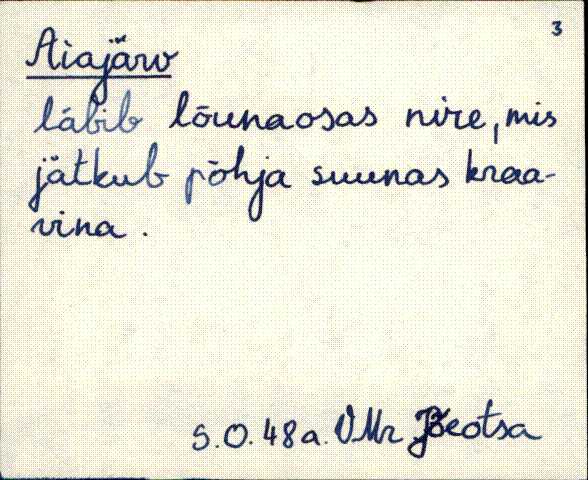 3
Aiajärv
läbib lõunaosas nire, mis
jätkub põhja suunas kraa-
vina.
S.O. 48a. VMr Jõeotsa